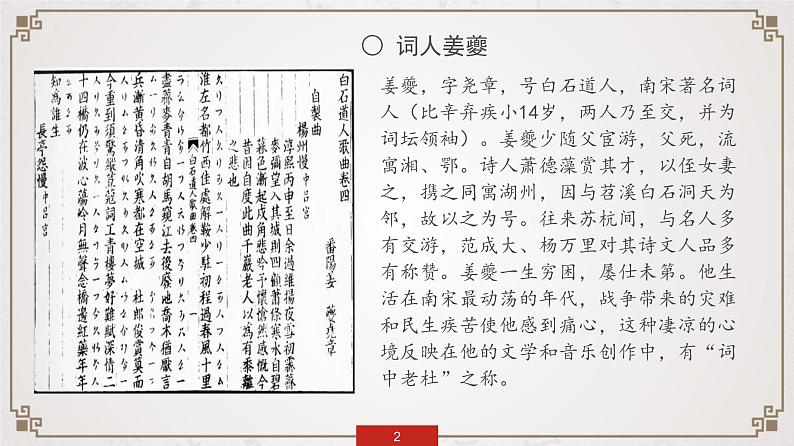 词人姜夔
白石道人歌曲卷四
番陽姜 夔堯章
自製曲
揚州慢 中吕宮
淳熙丙申至日余過維揚夜雪初霽薺
麥彌望入其城則四顧蕭條寒水自碧
暮色漸起戍角悲吟予懷愴然感慨今
昔因自度此曲千巖老人以為有黍離
之悲也
淮左名都竹西佳處解鞍少駐初程過春風十里
白石道人歌曲卷四
盡薺麥青青自胡馬窺江去後廢池喬木猶厭言
兵漸黃昏清角吹寒都在空城 杜郎俊賞算而
今重到須驚縱荳蔻詞工青樓夢好難賦深情二
十四橋仍在波心蕩冷月無聲念橋邊紅藥年年
知為誰生
長亭怨慢 中吕宮
姜夔，字尧章，号白石道人，南宋著名词
人（比辛弃疾小14岁，两人乃至交，并为
词坛领袖）。姜夔少随父宦游，父死，流
寓湘、鄂。诗人萧德藻赏其才，以侄女妻
之，携之同寓湖州，因与苕溪白石洞天为
邻，故以之为号。往来苏杭间，与名人多
有交游，范成大、杨万里对其诗文人品多
有称赞。姜夔一生穷困，屡仕未第。他生
活在南宋最动荡的年代，战争带来的灾难
和民生疾苦使他感到痛心，这种凄凉的心
境反映在他的文学和音乐创作中，有“词
中老杜”之称。
2